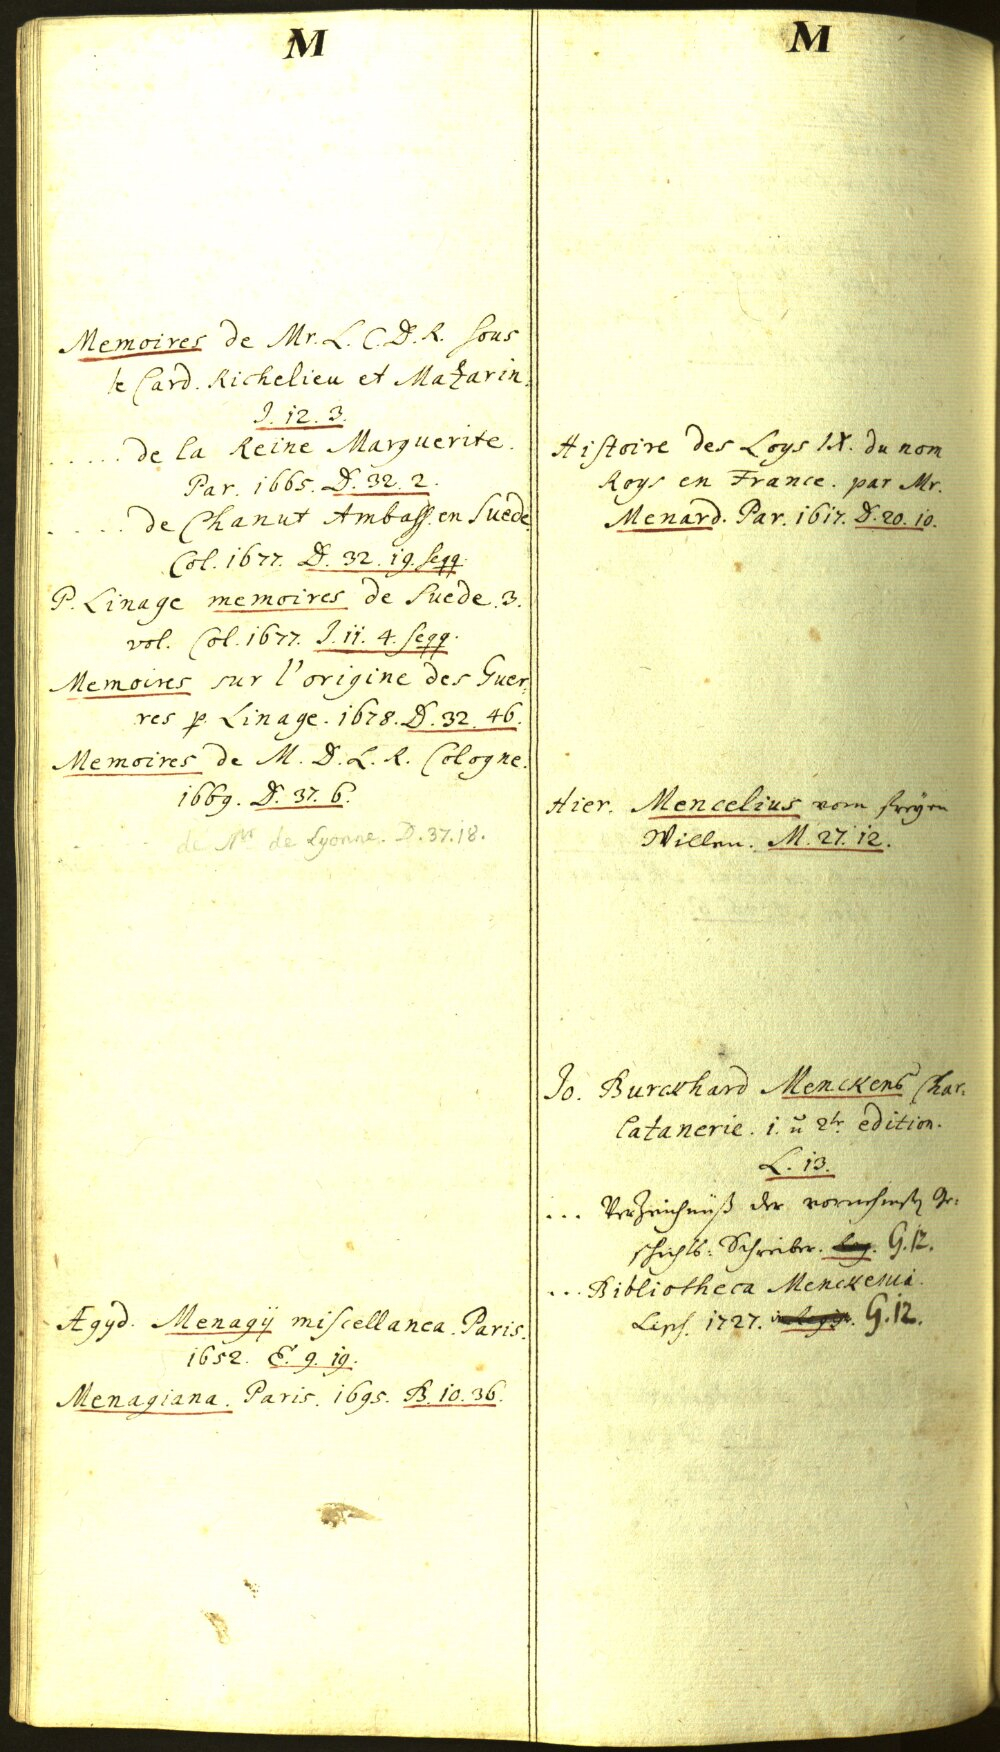 M
Memoires de Mr. L. C. D. R. sous
le Card. Richelieu et Mazarin.
J. 12. 3.
..... de la Reine Marguerite.
Par. 1665. D. 32. 2.
..... de Chanut Ambass. en Suede
Col. 1677. D. 32. 19. seqq.
P. Linage memoires de Suede. 3.
vol. Col. 1677. J. 11. 4. seqq.
Memoires sur l'origine des Guer,
res p. Linage. 1678. D. 32. 46.
Memoires de M. D. L. R. Cologne.
1669. D. 37. 6.
de Mr de Lyonne. D. 37. 18.
Ægyd. Menagij miscellanea. Paris.
1652. E. 9. 19.
Menagiana. Paris. 1695. B. 10. 36.
M
Histoire des Loys IX. du nom
Roys en France. par Mr.
Menard. Par. 1617. D. 20. 10.
Hier. Mencelius vom freyen
Willen. M. 27. 12.
Jo. Burckhard Menckens Char,
latanerie. 1. u 2tr. edition.
L. 13.
... Verzeichnüß der vornehmsten Ge:
schichts: Schreiber. G. 12.
... Bibliotheca Menckenia.
Lips. 1727. G. 12.